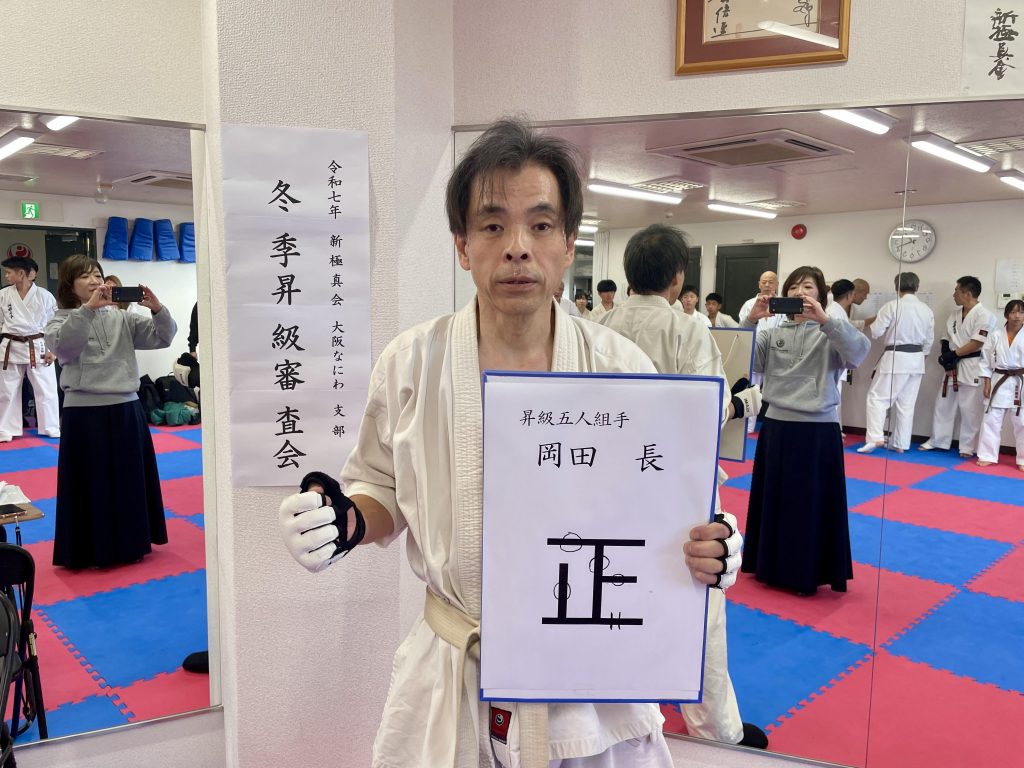 令和七年 新極真会 大阪なにわ 支部
冬季昇級審査会
昇級五人組手
岡田 長
正
新極真会